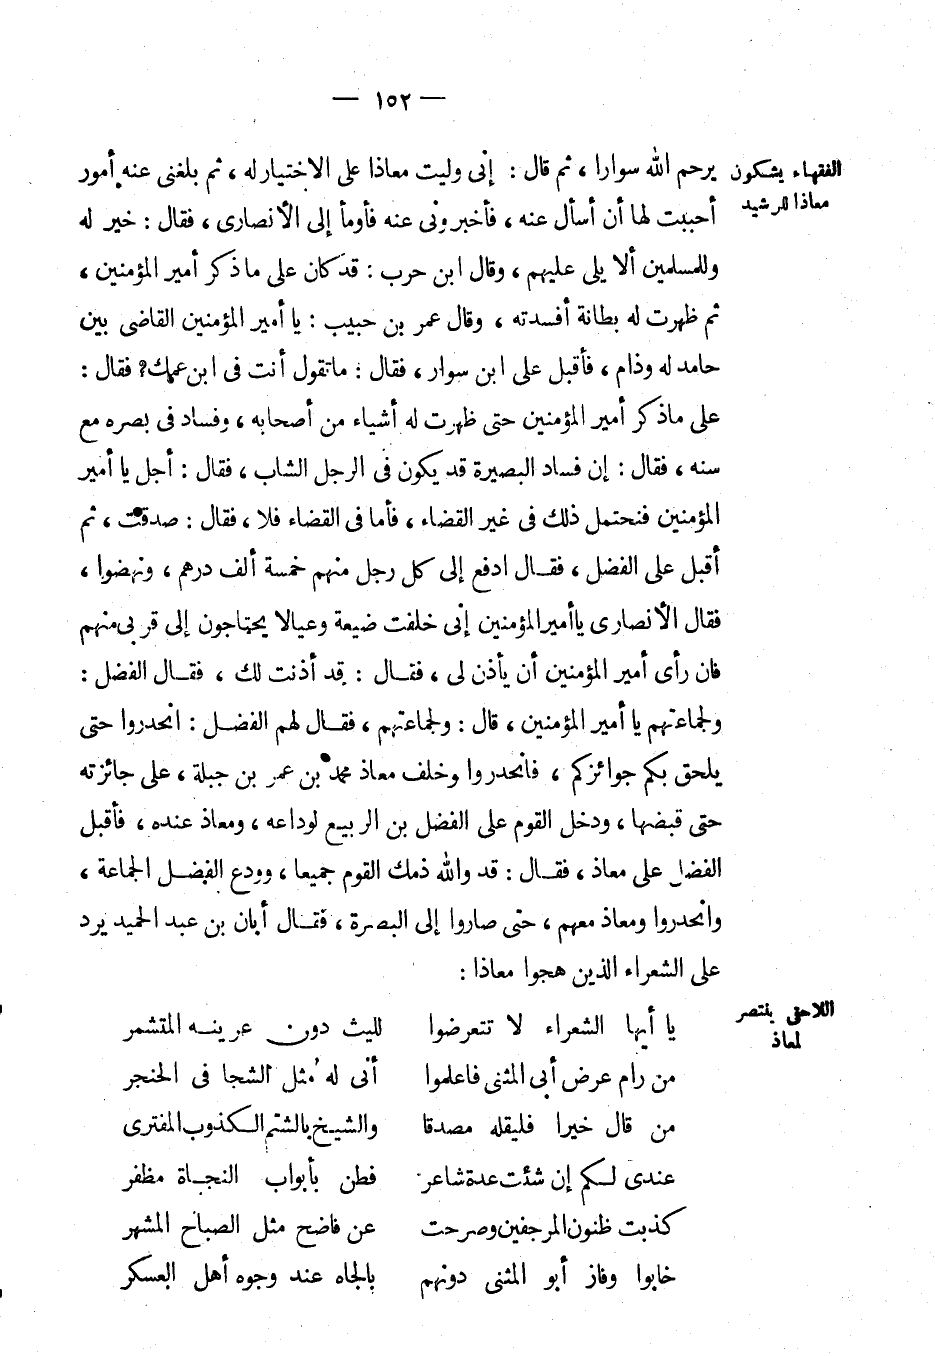 — ١٥٢ —
الفقهاء يشكون
معاذا للرشيد
يرحم الله سوارا ، ثم قال : إنى وليت معاذا على الاختيار له ، ثم بلغنى عنه أمور
أحببت لها أن أسأل عنه ، فأخبرونى عنه فأومأ إلى الأنصارى ، فقال : خير له
وللمسلمين ألا يلى عليهم ، وقال ابن حرب : قد كان على ما ذكر أمير المؤمنين ،
ثم ظهرت له بطانة أفسدته ، وقال عمر بن حبيب : يا أمير المؤمنين القاضى بين
حامد له وذام ، فأقبل على ابن سوار ، فقال : ما تقول أنت فى ابن عمك؟ فقال :
على ماذكر أمير المؤمنين حتى ظهرت له أشياء من أصحابه ، وفساد فى بصره مع
سنه ، فقال : إن فساد البصيرة قد يكون فى الرجل الشاب ، فقال : أجل يا أمير
المؤمنين فنحتمل ذلك فى غير القضاء ، فأما فى القضاء فلا ، فقال : صدقت ، ثم
أقبل على الفضل ، فقـال ادفع إلى كل رجل منهم خمسة ألف درهم ، ونهضوا ،
فقال الأنصارى يا أمير المؤمنين إنى خلفت ضيعة وعيالا يحتاجون إلى قربى منهم
فان رأى أمير المؤمنين أن يأذن لى ، فقـال : قد أذنت لك ، فقـال الفضل :
ولجماعتهم يا أمير المؤمنين ، قال : ولجماعتهم ، فقـال لهم الفضـل : انحدروا حتى
يلحق بكم جوائزكم ، فانحدروا وخلف معاذ محمد بن عمر بن جبلة ، على جائزته
حتى قبضها ، ودخل القوم على الفضل بن الربيع لوداعه ، ومعاذ عنده ، فأقبل
الفضل على معاذ ، فقـال : قد والله ذمك القوم جميعا ، وودع الفضـل الجماعة ،
وانحدروا ومعاذ معهم ، حتى صاروا إلى البصرة ، فقـال أبان بن عبد الحميد يرد
على الشعراء الذين هجوا معاذا :
اللاحقى ينتصر
لمعاذ
يا أيها الشعراء لا تتعرضوا لليث دون عرينـه المتشمر
من رام عرض أبى المثنى فاعلموا أنى له مثل الشجا فى الحنجر
من قال خيرا فليقله مصدقا والشيـخ بالشتم الـكذوب المفترى
عندى لـكم إن شئت عدة شاعر فطن بأبواب النجـاة مظفر
كذبت ظنون المرجفين وصرحت عن فاضح مثل الصباح المشهر
خابوا وفاز أبو المثنى دونهم بالجاه عند وجوه أهل العسكر